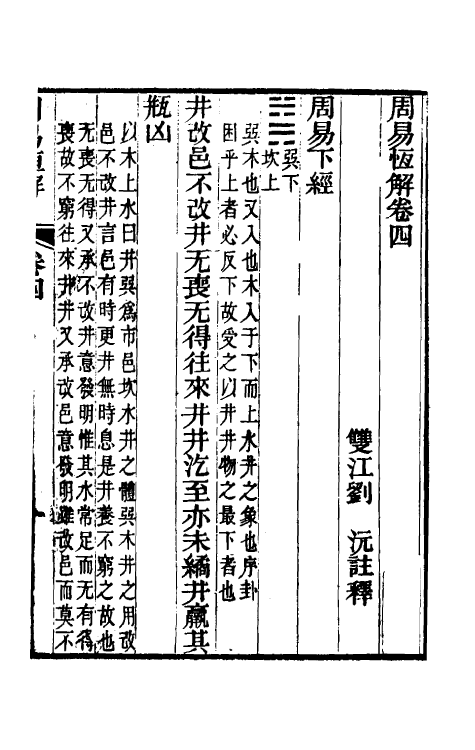 周易恆解卷四
雙江劉　沅註釋
周易下經
巽下
坎上
巽木也又入也木入于下而上水井之象也序卦
困乎上者必反下故受之以井井物之最下者也
井改邑不改井无喪无得往來井井汔至亦未繘井羸其
瓶凶
以木上水曰井巽為市邑坎水井之體巽木井之用改
邑不改井言邑有時更井無時息是井養不窮之故也
无喪无得又承不改井意發明惟其水常足而无有得
喪故不窮往來井井又承改邑意發明雖改邑而莫不
卷四